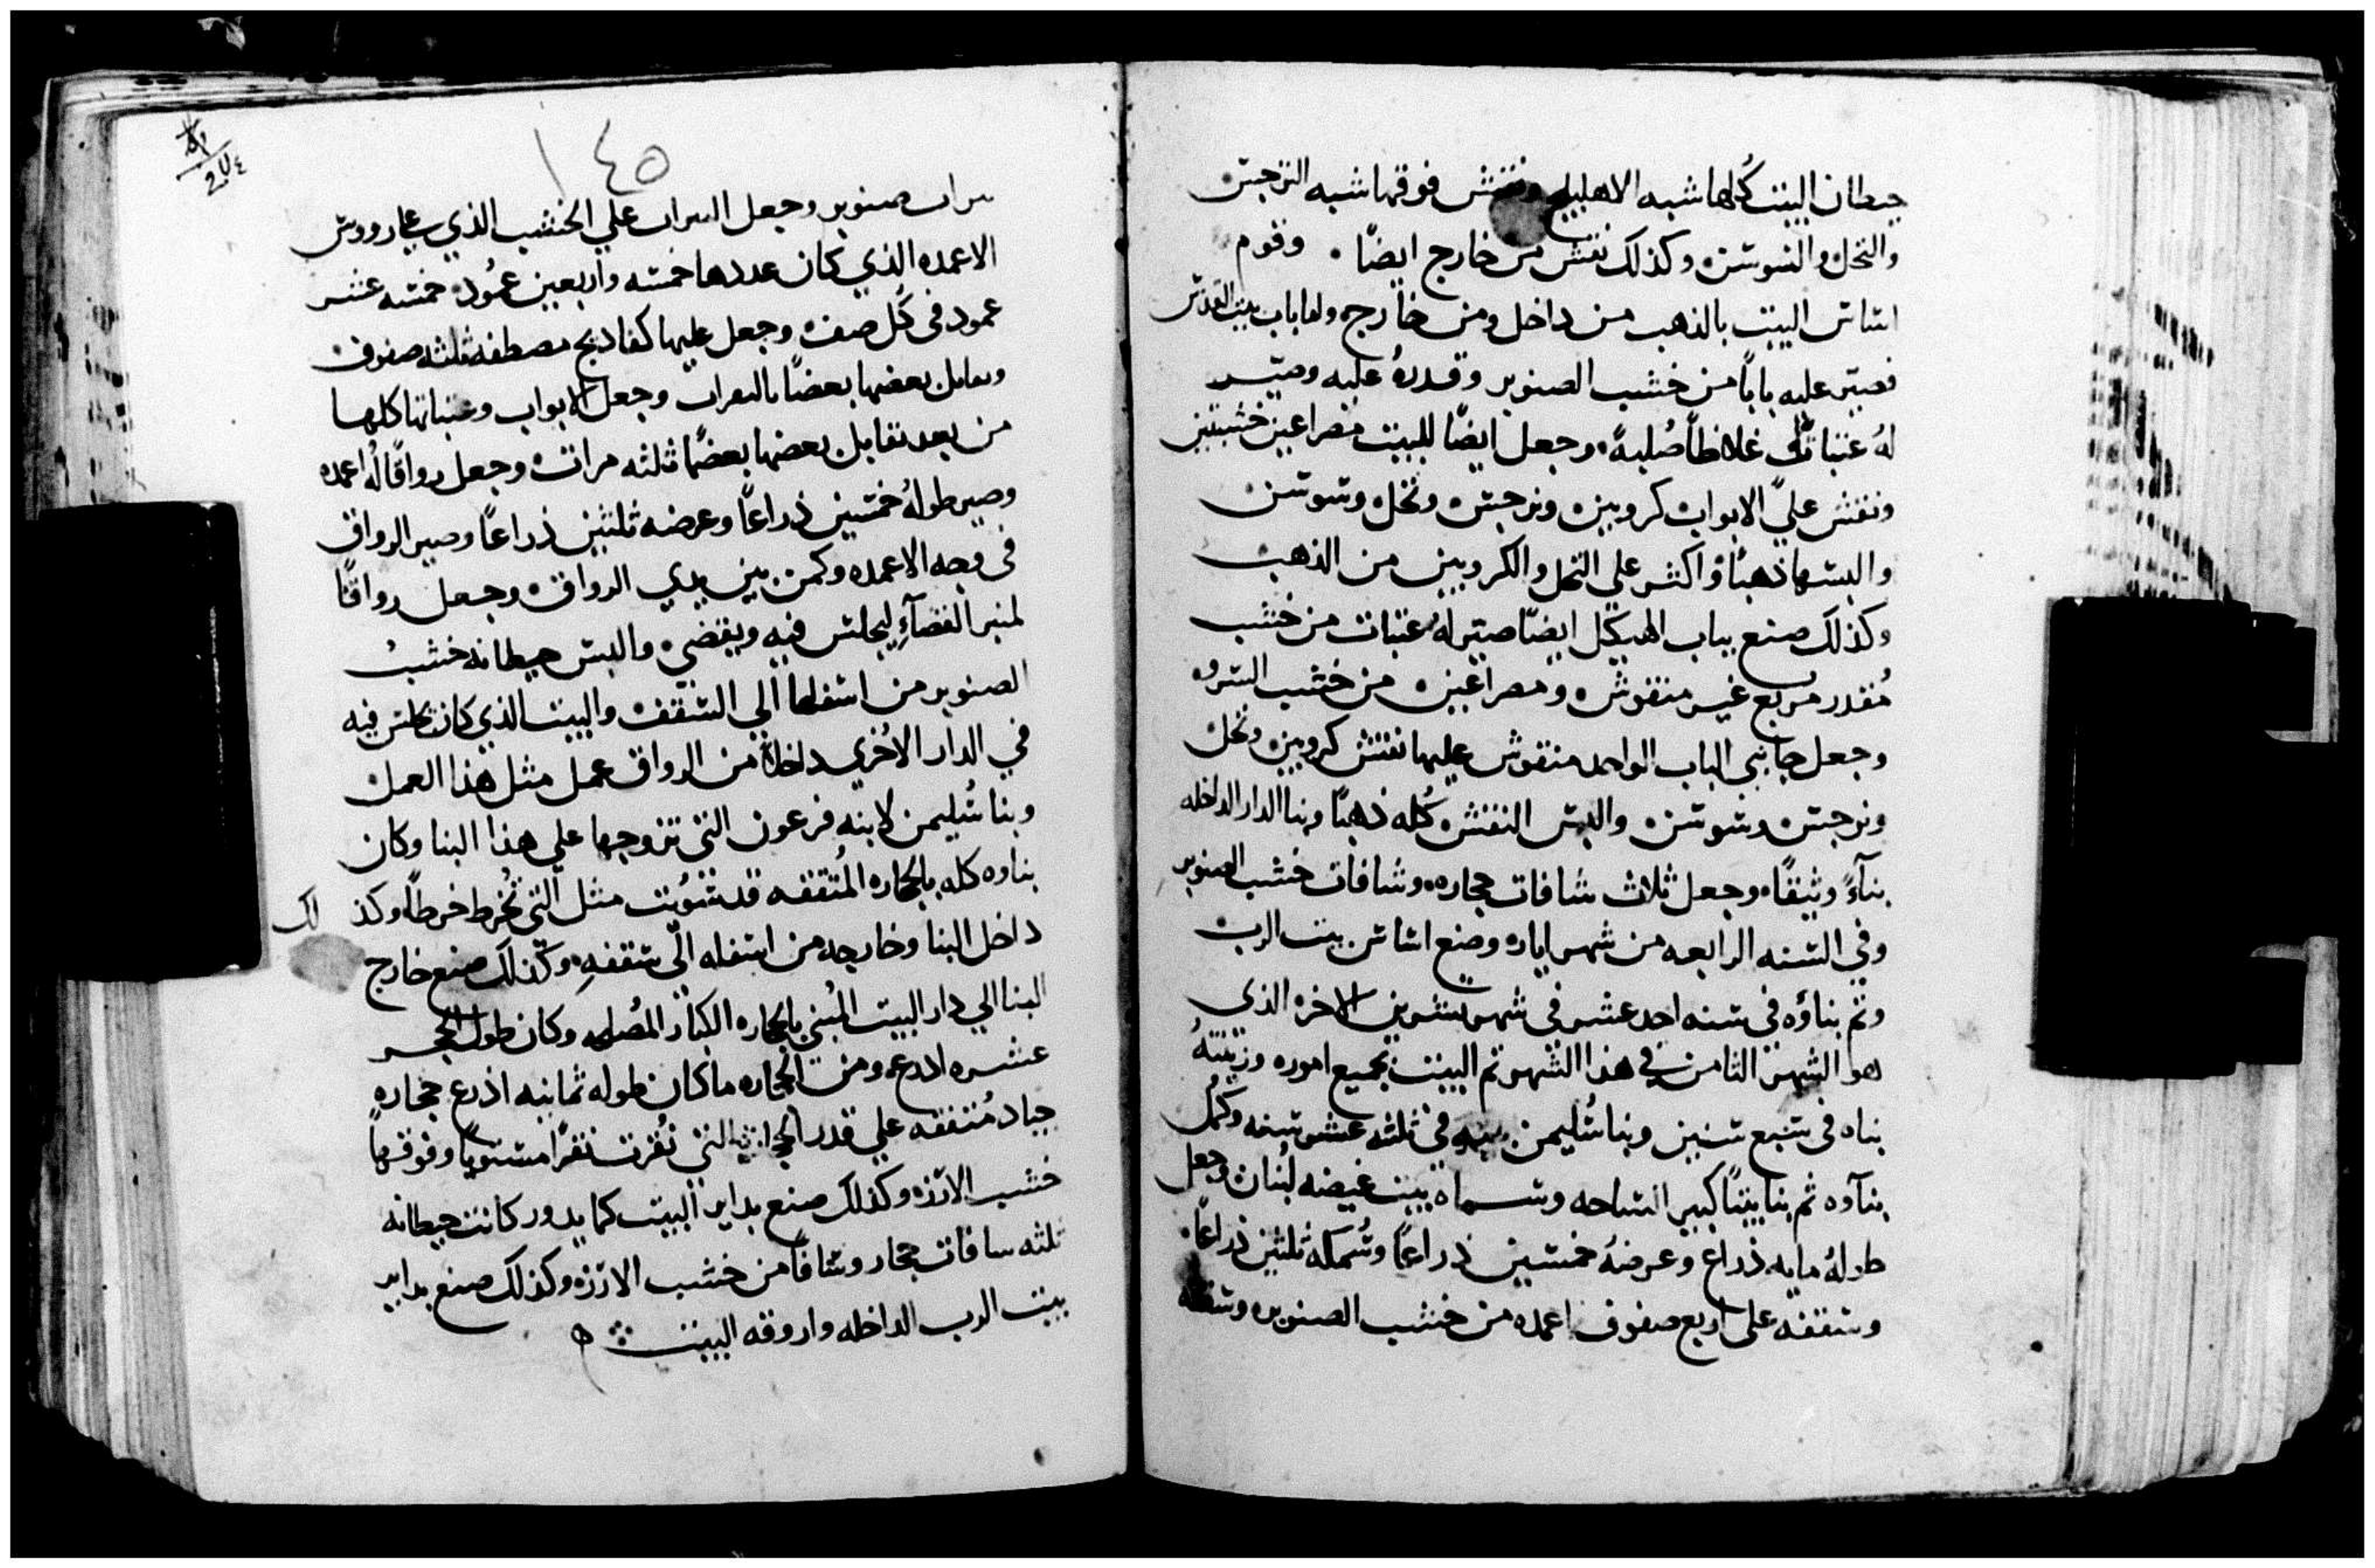 حيطان البيت كُلها شبه الاهليلج ونقش فوقها شبه النرجس
والنخل والسوسن وكذلك نقش من خارج ايضًا · وقوم
اساس البيت بالذهب من داخل ومن خارج ولما باب بيت القدس
فصير عليه بابًا من خشب الصنوبر وقدرهُ عليه وصيّر
لهُ عتبات غلاظًا صُلبةً وجعل ايضًا للبيت مصراعين خشبتين
ونقش علي الابواب كروبين ونرجس ونخل وسوسن
والبسها ذهبًا واكثر علي النخل والكروبين من الذهب
وكذلك صنع بباب الهيكل ايضًا صير له عتبات من خشب
مُقدر مربع غير منقوش ومصراعين من خشب السرو
وجعل جانبي الباب الواحد منقوش عليها نقش كروبين ونخل
ونرجس وسوسن والبس النقش كُله ذهبًا وبنا الدار الداخله
بناءً وثيقًا وجعل ثلاث سافات حجاره وسافات خشب الصنوبر
وفي السنه الرابعه من شهر اياره وضع اساس بيت الرب
وتم بناؤه في سنه احد عشر في شهر تشرين الاخر الذي
هو الشهر الثامن في هذا الشهر تم البيت بجميع اموره وزينتهُ
بناه في سبع سنين وبنا سُليمن بيته في ثلثه عشر سنه وكمل
بناؤه ثم بنا بيتًا كبير الساحه وسماه بيت غيضه لبنان وجعل
طولهُ مايه ذراع وعرضهُ خمسين ذراعًا وسُمكه ثلثين ذراعًا·
وسقفه علي اربع صفوف اعمده من خشب الصنوبر وسقفه
١٤٥
صنوبر وجعل علي الخشب الذي
الاعمده الذي كان عددها خمسه واربعين عمُود خمسه عشر
عمود في كُل صف وجعل عليها مصطفه ثلثه صفوف
بعضها بعضًا وجعل الابواب وعتباتها كلها
من بعد تقابل بعضها بعضًا ثلثه مرات وجعل رواقًا لهُ اعمده
وصير طولهُ خمسين ذراعًا وعرضه ثلثين ذراعًا وصير الرواق
في وجه الاعمده بين يدي الرواق وجعل رواقًا
لمنبر القضآءِ ليجلس فيه ويقضي والبس حيطانه خشب
الصنوبر من اسفلها الي السقف والبيت الذي كان يجلس فيه
في الدار الاخري داخلاً من الرواق عمل مثل هذا العمل
وبنا سُليمن لابنه فرعون التي تزوجها علي هذا البنا وكان
بناوه كله بالحجاره المُتقفه قد سُويت مثل التي تُخرط خرطًا وكذلك
داخل البنا وخارجه من اسفله الي سقفهِ وكذلك صنع خارج
البنا الي دار البيت المُبني بالحجاره الكبار وكان طول الحجر
عشره اذرع ومن الحجاره ما كان طوله ثمانيه اذرع حجاره
جياد مُتفقه علي قدر الحجاره التي نُقرت نقرًا مستويًا وفوقها
خشب الارزه وكذلك صنع بداير البيت كما يدور كانت حيطانه
ثلثه سافات حجار وسافًا من خشب الارزه وكذلك صنع بداير
بيت الرب الداخله واروقه البيت